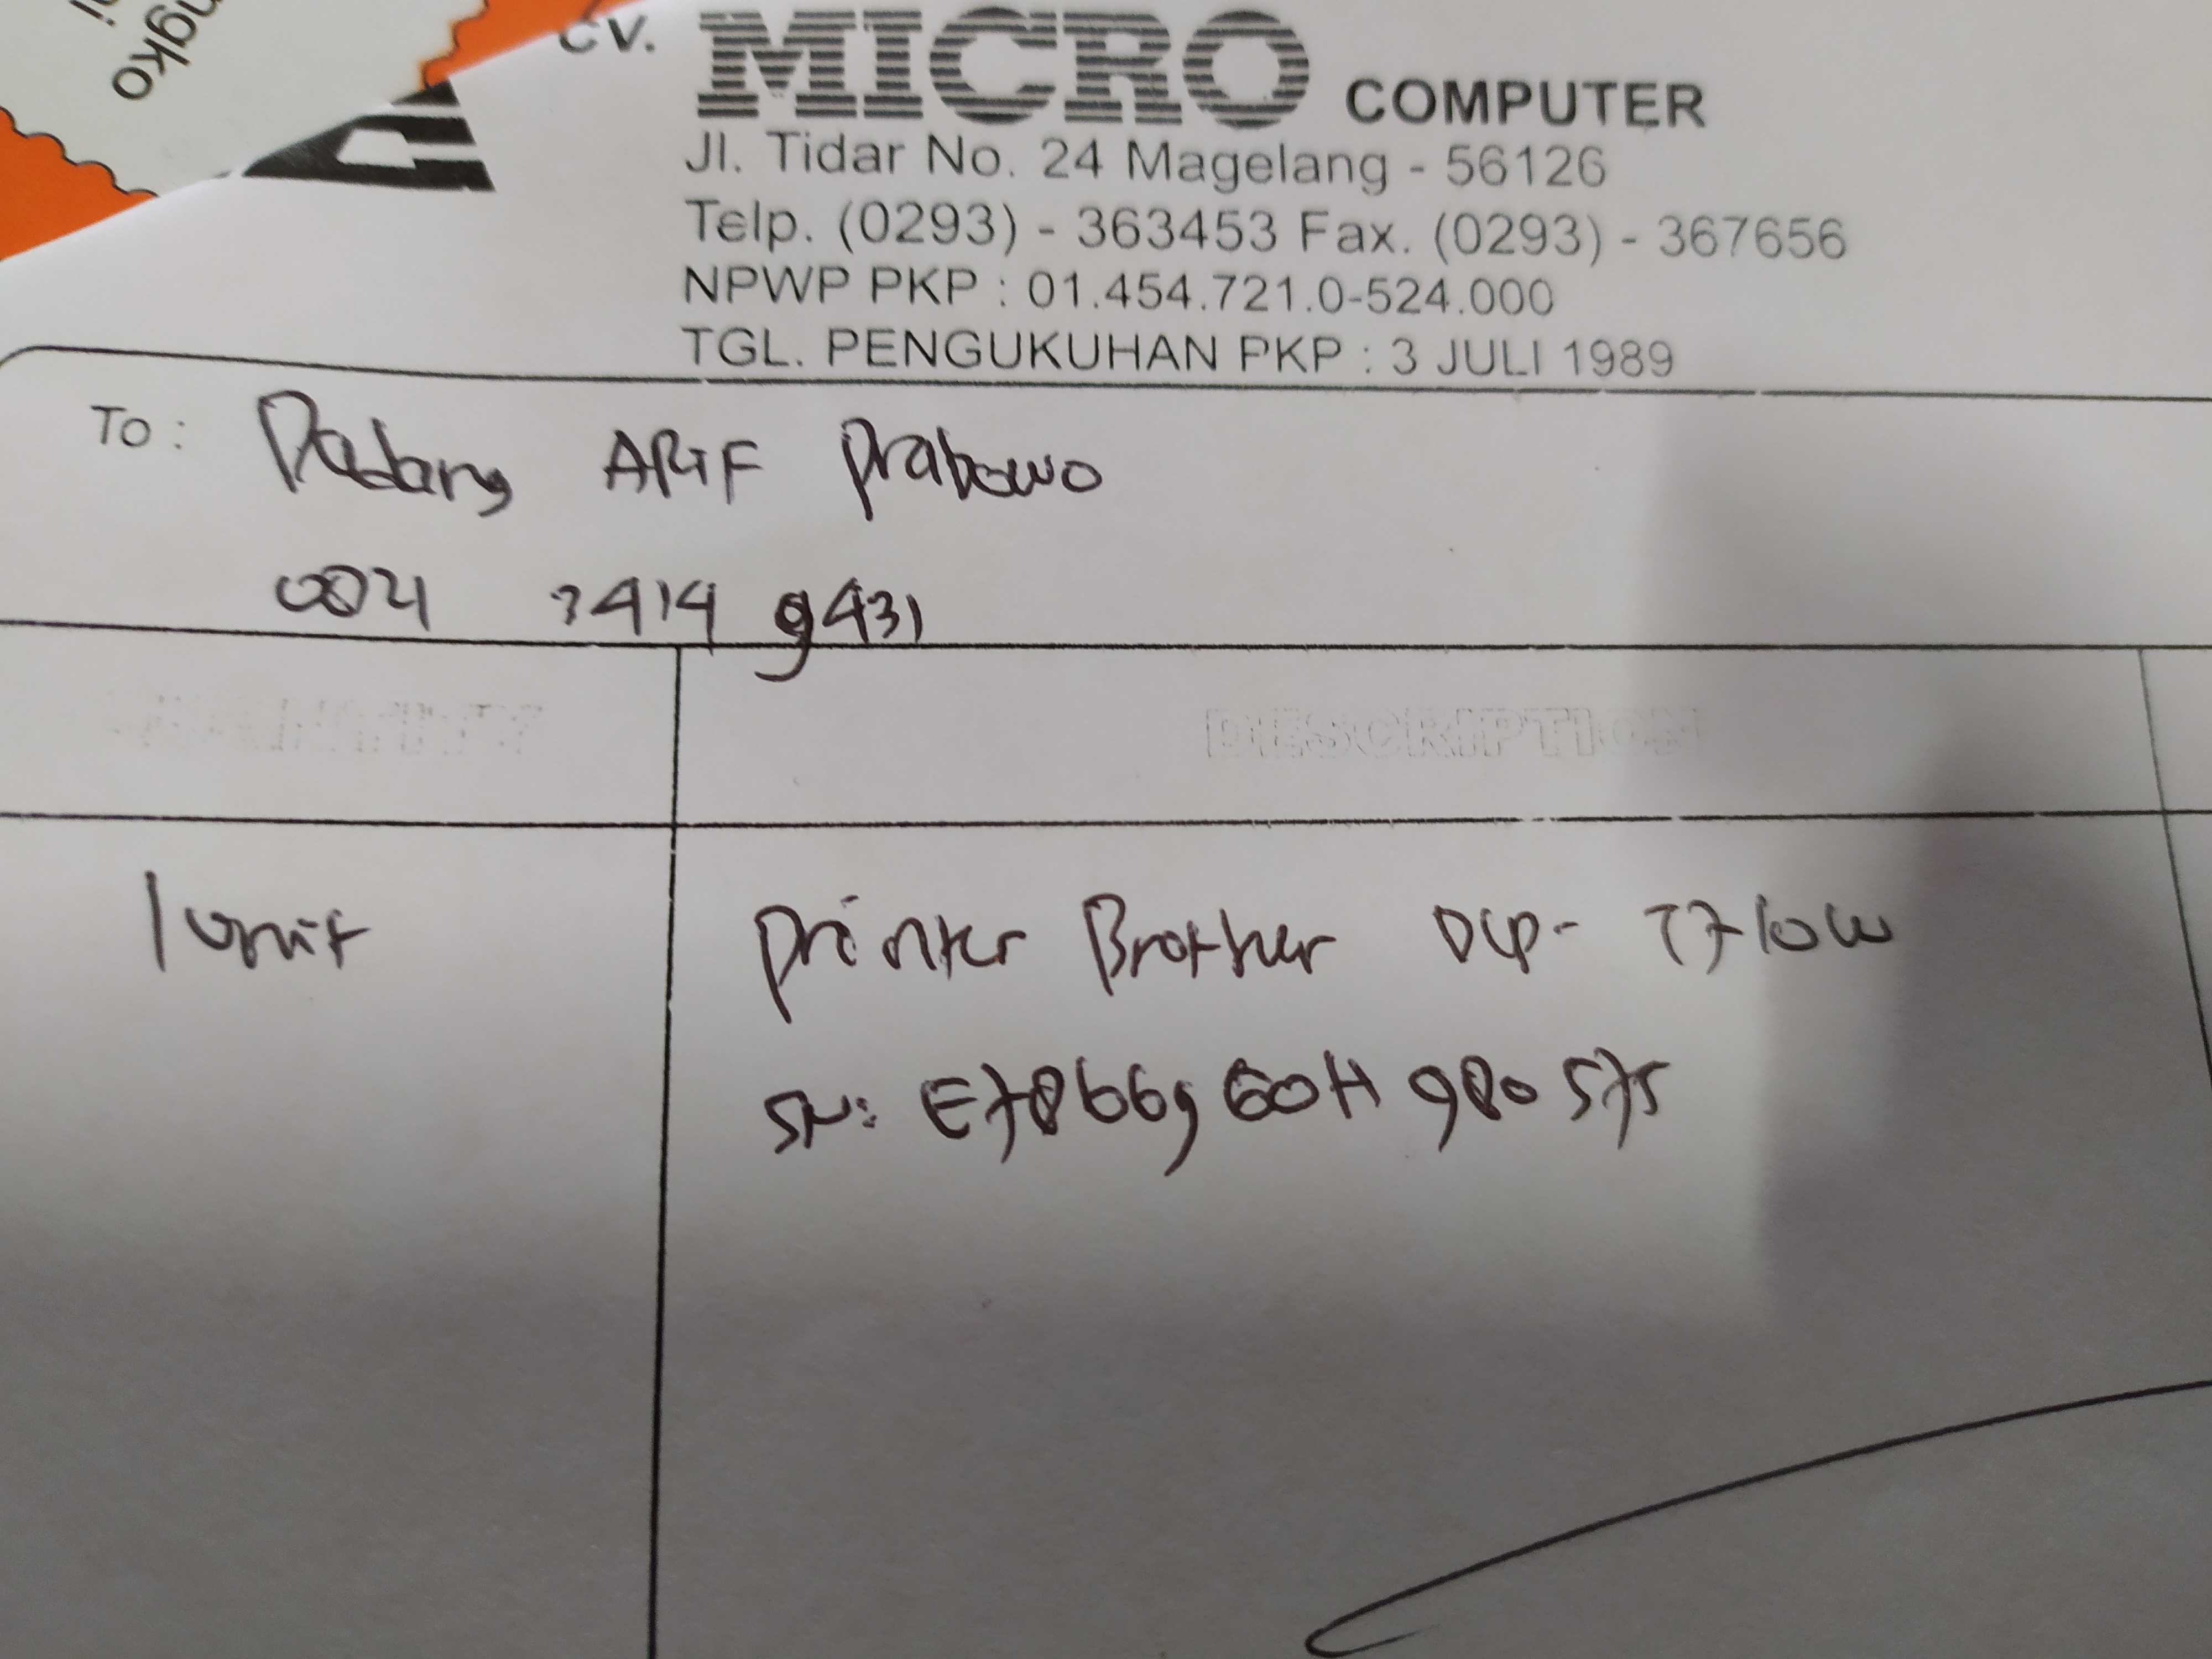 ngko
CV. MICRO COMPUTER
Jl. Tidar No. 24 Magelang - 56126
Telp. (0293) - 363453 Fax. (0293) - 367656
NPWP PKP : 01.454.721.0-524.000
TGL. PENGUKUHAN PKP : 3 JULI 1989
To : Dadang ARIF Prabowo
QUANTITY DESCRIPTION
1 unit Printer Brother DCP- T710W
SN: E78266960H980575